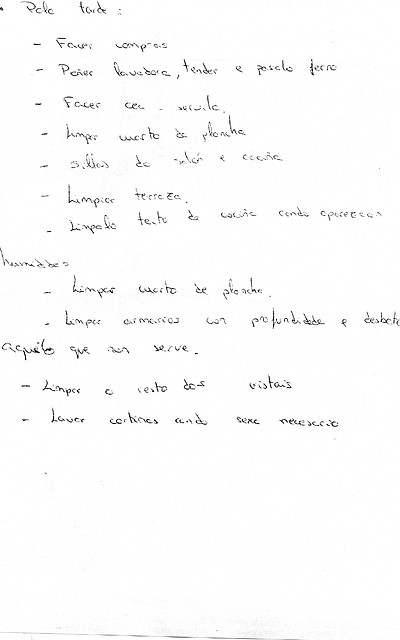 • Pola tarde:
- Facer compras
- Poñer lavadora, tender e pasalo ferro
- Facer cea - sencilla.
- Limpar cuarto da plancha
- sillas do salón e cociña
- Limpiar terraza.
- Limpalo teito da cociña cando aparezcan
humidades
- Limpar cuarto de plancha.
- Limpar armarios con profundidade e desbotar
aquelo que non serve.
- Limpar o resto dos cristais
- Lavar cortinas cando sexa necesario